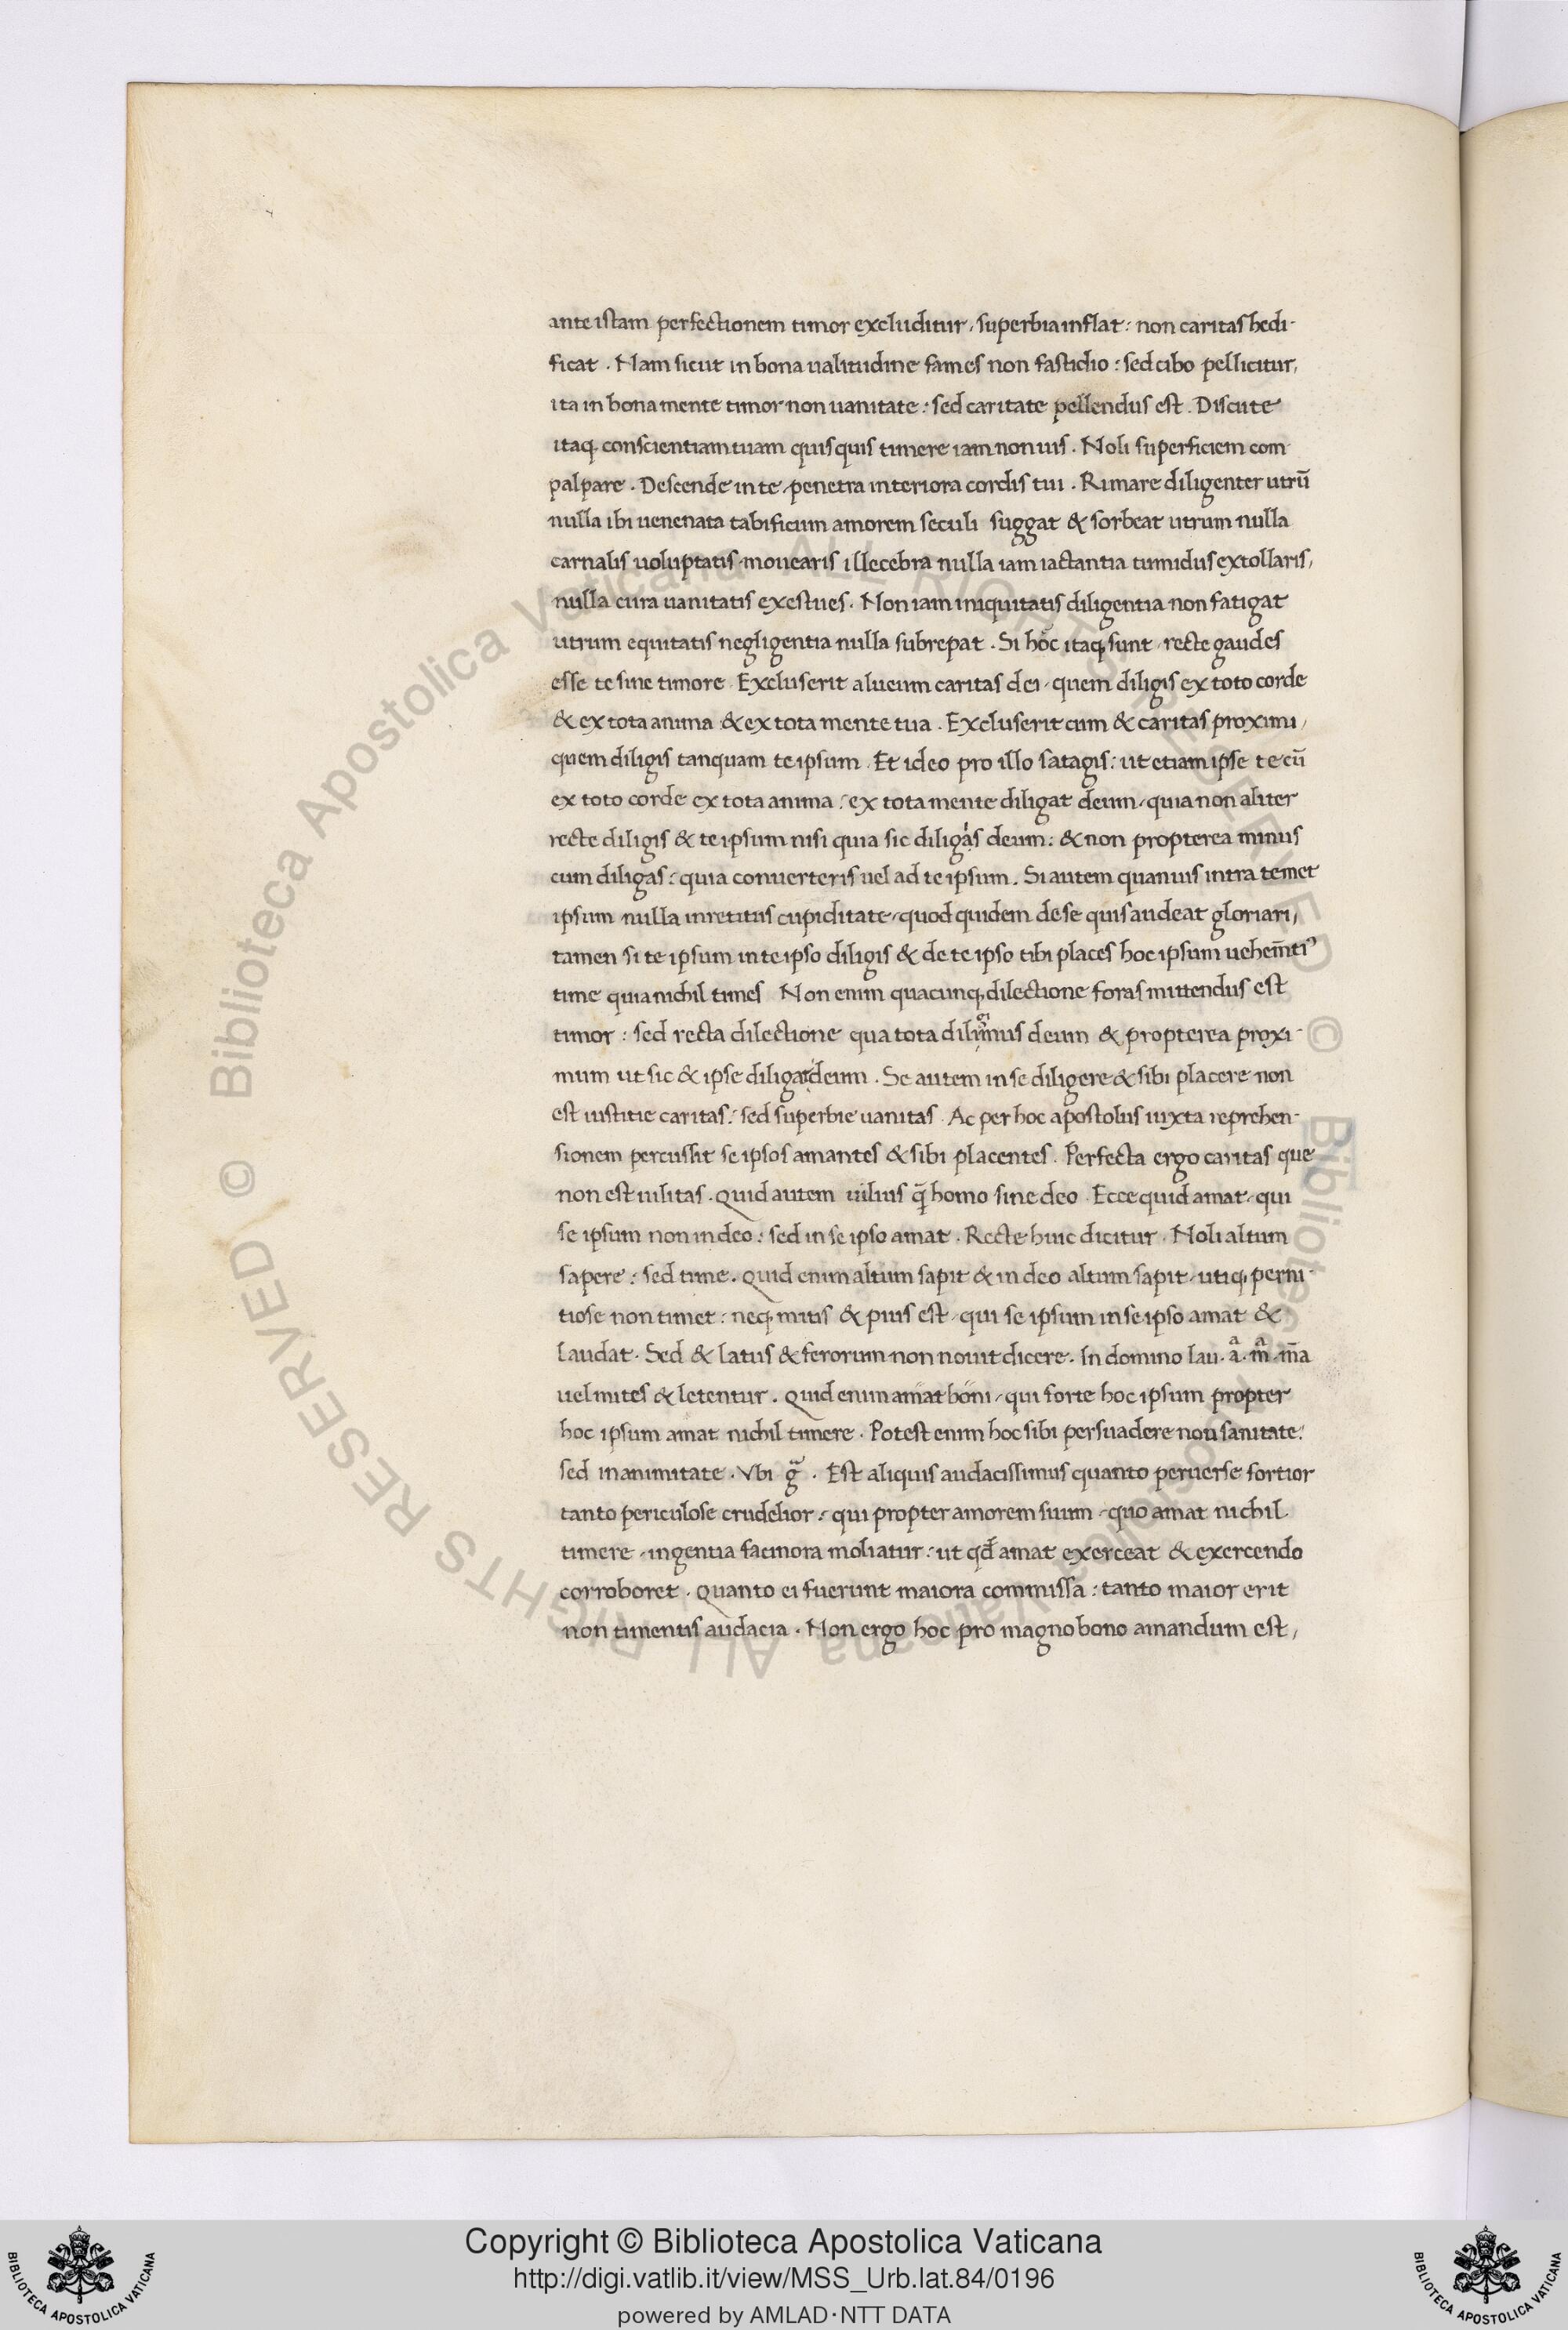 ante istam perfectionem timor excluditur, superbia inflat: non caritas hedi-
ficat. Nam sicut in bona ualitudine fames non fastidio: sed cibo pellicitur,
ita in bona mente timor non uanitate: sed caritate pellendus est. Discute
itaq, conscientiam tuam quisquis timere iam non uis. Noli superficiem com
palpare. Descende in te, penetra interiora cordis tui. Rimare diligenter utrū
nulla ibi uenenata tabificum amorem seculi suggat & sorbeat utrum nulla
carnalis uoluptatis mouearis illecebra nulla iam iactantia tumidus extollaris,
nulla cura uanitatis exestues. Non iam iniquitatis diligentia non fatigat
utrum equitatis negligentia nulla subrepat. Si hoc itaq, sunt, recte gaudes
esse te sine timore. Excluserit alueum caritas dei, quem diligis ex toto corde
& ex tota anima & ex tota mente tua. Excluserit eum & caritas proximi,
quem diligis tanquam te ipsum. Et ideo pro illo satagis: ut etiam ipse tecū
ex toto corde ex tota anima: ex tota mente diligat deum, quia non aliter
recte diligis & te ipsum nisi quia sic diligas deum: & non propterea minus
cum diligas: quia conuerteris uel ad te ipsum. Si autem quamuis intra temet
ipsum nulla inretitus cupiditate, quod quidem de se quis audeat gloriari,
tamen si te ipsum in te ipso diligis & de te ipso tibi places hoc ipsum uehem̄tiꝰ
time quia nichil times Non enim quacunq, dilectione foras mittendus est
timor: sed recta dilectione qua tota diligimus deum & propterea proxi-
mum ut sic & ipse diligat deum. Se autem in se diligere & sibi placere non
est iustitie caritas: sed superbie uanitas. Ac per hoc apostolus iuxta reprehen-
sionem percussit se ipsos amantes & sibi placentes. Perfecta ergo caritas que
non est uilitas. Quid autem uilius q̄ homo sine deo. Ecce quid amat, qui
se ipsum non in deo: sed in se ipso amat. Recte huic dicitur. Noli altum
sapere: sed time. Quid enim altum sapit & in deo altum sapit, utiq, perni-
tiose non timet: neq, mitis & pius est, qui se ipsum in se ipso amat &
laudat. Sed & latus & ferorum non nouit dicere. In domino lau. a. m. m̄a
uel mites & letentur. Quid enim amat boni, qui forte hoc ipsum propter
hoc ipsum amat nichil timere. Potest enim hoc sibi persuadere non sanitate:
sed inanimitate. Vbi g. Est aliquis audacissimus quanto peruerse fortior
tanto periculose crudelior: qui propter amorem suum, quo amat nichil
timere, ingentia facinora moliatur: ut qd̄ amat exerceat & exercendo
corroboret. Quanto ei fuerunt maiora commissa: tanto maior erit
non timentis audacia. Non ergo hoc pro magno bono amandum est,
© Biblioteca Apostolica Vaticana ALL RIGHTS RESERVED
© Biblioteca Apostolica Vaticana ALL RIGHTS RESERVED
Copyright © Biblioteca Apostolica Vaticana
http://digi.vatlib.it/view/MSS_Urb.lat.84/0196
powered by AMLAD·NTT DATA
BIBLIOTECA APOSTOLICA VATICANA
BIBLIOTECA APOSTOLICA VATICANA